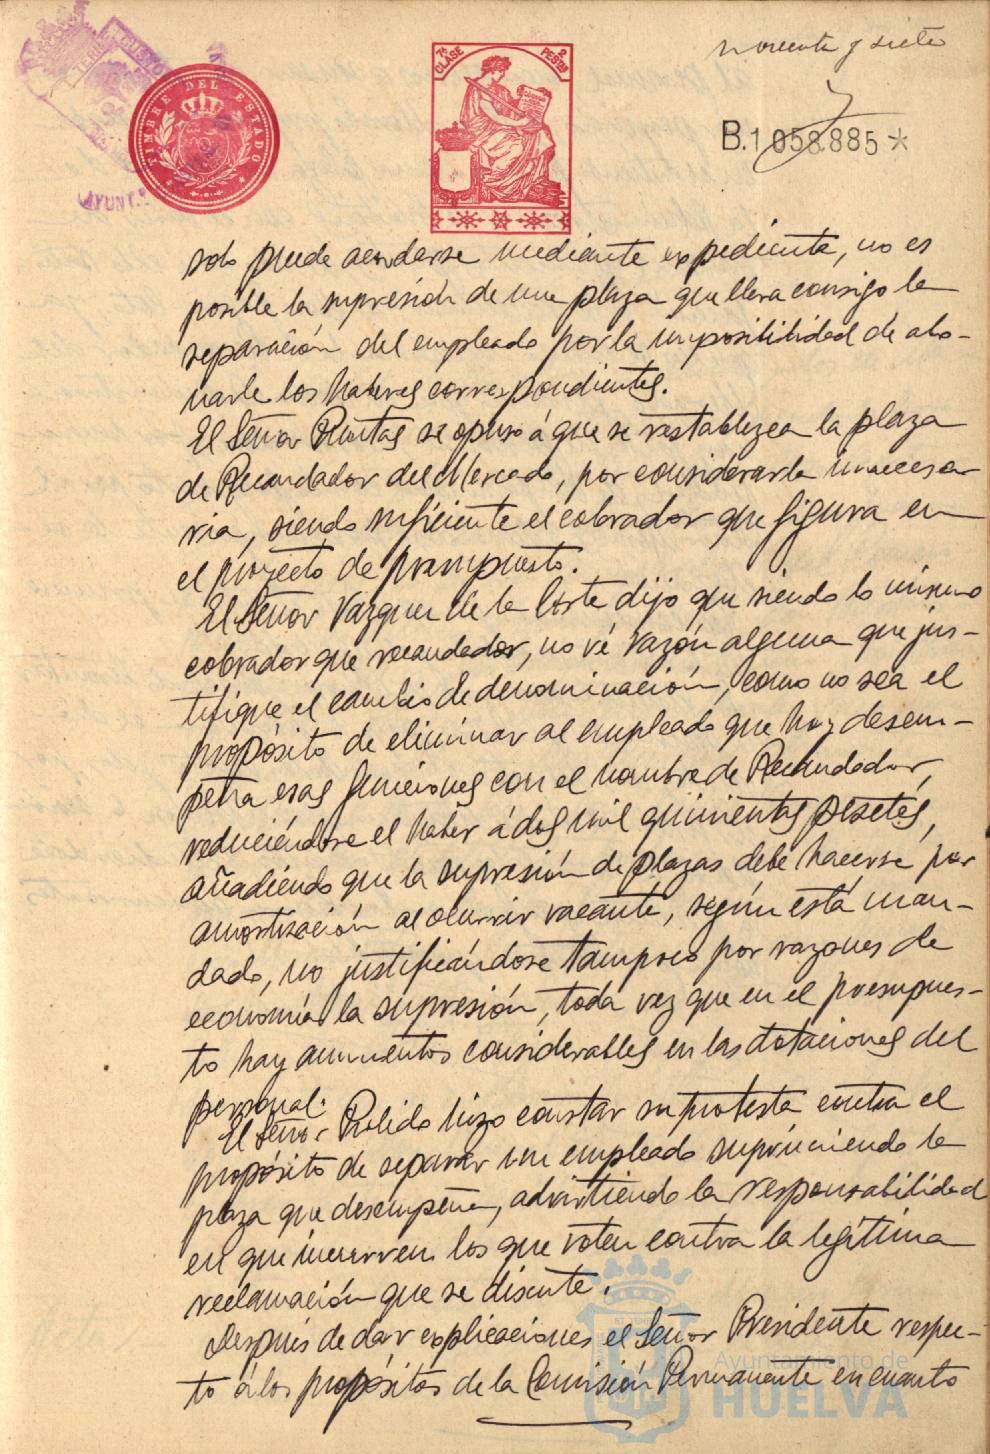 noventa y siete
7ª CLASE
2 PESTAS
TIMBRE DEL ESTADO
AYUNT.
B.1058.885*
solo puede acordarse mediante expediente, no es
posible la supresión de una plaza que lleva consigo la
separación del empleado por la imposibilidad de abo-
narle los haberes correspondientes.
El Señor Rentas se opuso á que se restablezca la plaza
de Recaudador del Mercado, por considerarla innecesa-
ria, siendo suficiente el cobrador que figura en
el proyecto de presupuesto.
El Señor Vazquez de la Corte dijo que siendo lo mismo
cobrador que recaudador, no vé razón alguna que jus-
tifique el cambio de denominación, como no sea el
propósito de eliminar al empleado que hoy desem-
peña esas funciones con el nombre de Recaudador,
reduciéndose el haber á dos mil quinientas pesetas,
añadiendo que la supresión de plazas debe hacerse por
amortización al ocurrir vacante, según está man-
dado, no justificándose tampoco por razones de
economía la supresión, toda vez que en el presupues-
to hay aumentos considerables en las dotaciones del
personal.
El Señor Pulido hizo constar su protesta contra el
propósito de separar un empleado suprimiendo la
plaza que desempeña, advirtiendo la responsabilidad
en que incurren los que voten contra la legítima
reclamación que se discute.
Después de dar explicaciones el Señor Presidente respec-
to á los propósitos de la Comisión Permanente en cuanto
Ayuntamiento de
HUELVA